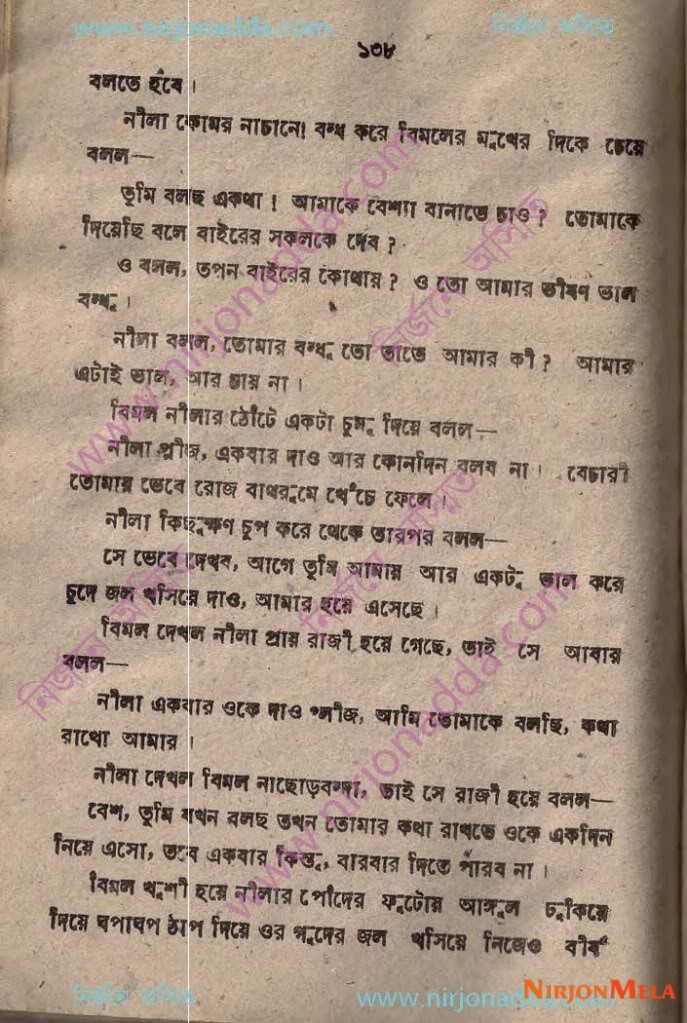 www.nirjonadda.com নির্জনে অসিত
১৩৮
বলতে হবে।
নীলা কোমর নাচানো বন্ধ করে বিমলের মুখের দিকে চেয়ে
বলল—
তুমি বলছ একথা! আমাকে বেশ্যা বানাতে চাও? তোমাকে
দিয়েছি বলে বাইরের সকলকে দেব?
ও বলল, তপন বাইরের কোথায়? ও তো আমার ভীষণ ভাল
বন্ধু।
নীলা বলল, তোমার বন্ধু তো তাতে আমার কী? আমার
এটাই ভাল, আর চায় না।
বিমল নীলার ঠোঁটে একটা চুমু দিয়ে বলল—
নীলা প্লীজ, একবার দাও আর কোনদিন বলব না। বেচারী
তোমায় ভেবে রোজ বাথরুমে খেঁচে ফেলে।
নীলা কিছুক্ষণ চুপ করে থেকে তারপর বলল—
সে ভেবে দেখব, আগে তুমি আমায় আর একটু ভাল করে
চুদে জল খসিয়ে দাও, আমার হয়ে এসেছে।
বিমল দেখল নীলা প্রায় রাজী হয়ে গেছে, তাই সে আবার
বলল—
নীলা একবার ওকে দাও প্লীজ, আমি তোমাকে বলছি, কথা
রাখো আমার।
নীলা দেখল বিমল নাছোড়বন্দা, তাই সে রাজী হয়ে বলল—
বেশ, তুমি যখন বলছ তখন তোমার কথা রাখতে ওকে একদিন
নিয়ে এসো, তবে একবার কিন্তু, বারবার দিতে পারব না।
বিমল খুশী হয়ে নীলার পোঁদের ফুটোয় আঙ্গুল ঢুকিয়ে
দিয়ে ঘপাঘপ ঠাপ দিয়ে ওর গুদের জল খসিয়ে নিজেও বীর্য
www.nirjonadda.com
NIRJONMELA